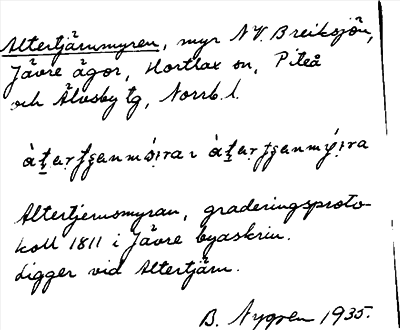 Altertjärnmyren, myr N.V. Breiksjön,
Jävre ägor, Hortlax sn, Piteå
och Älvsby tg, Norrb. l.
Altertjernsmyran, graderingsproto-
koll 1811 i Jävre byaskrin.
Ligger vid Altertjärn.
B. Nygren 1935.